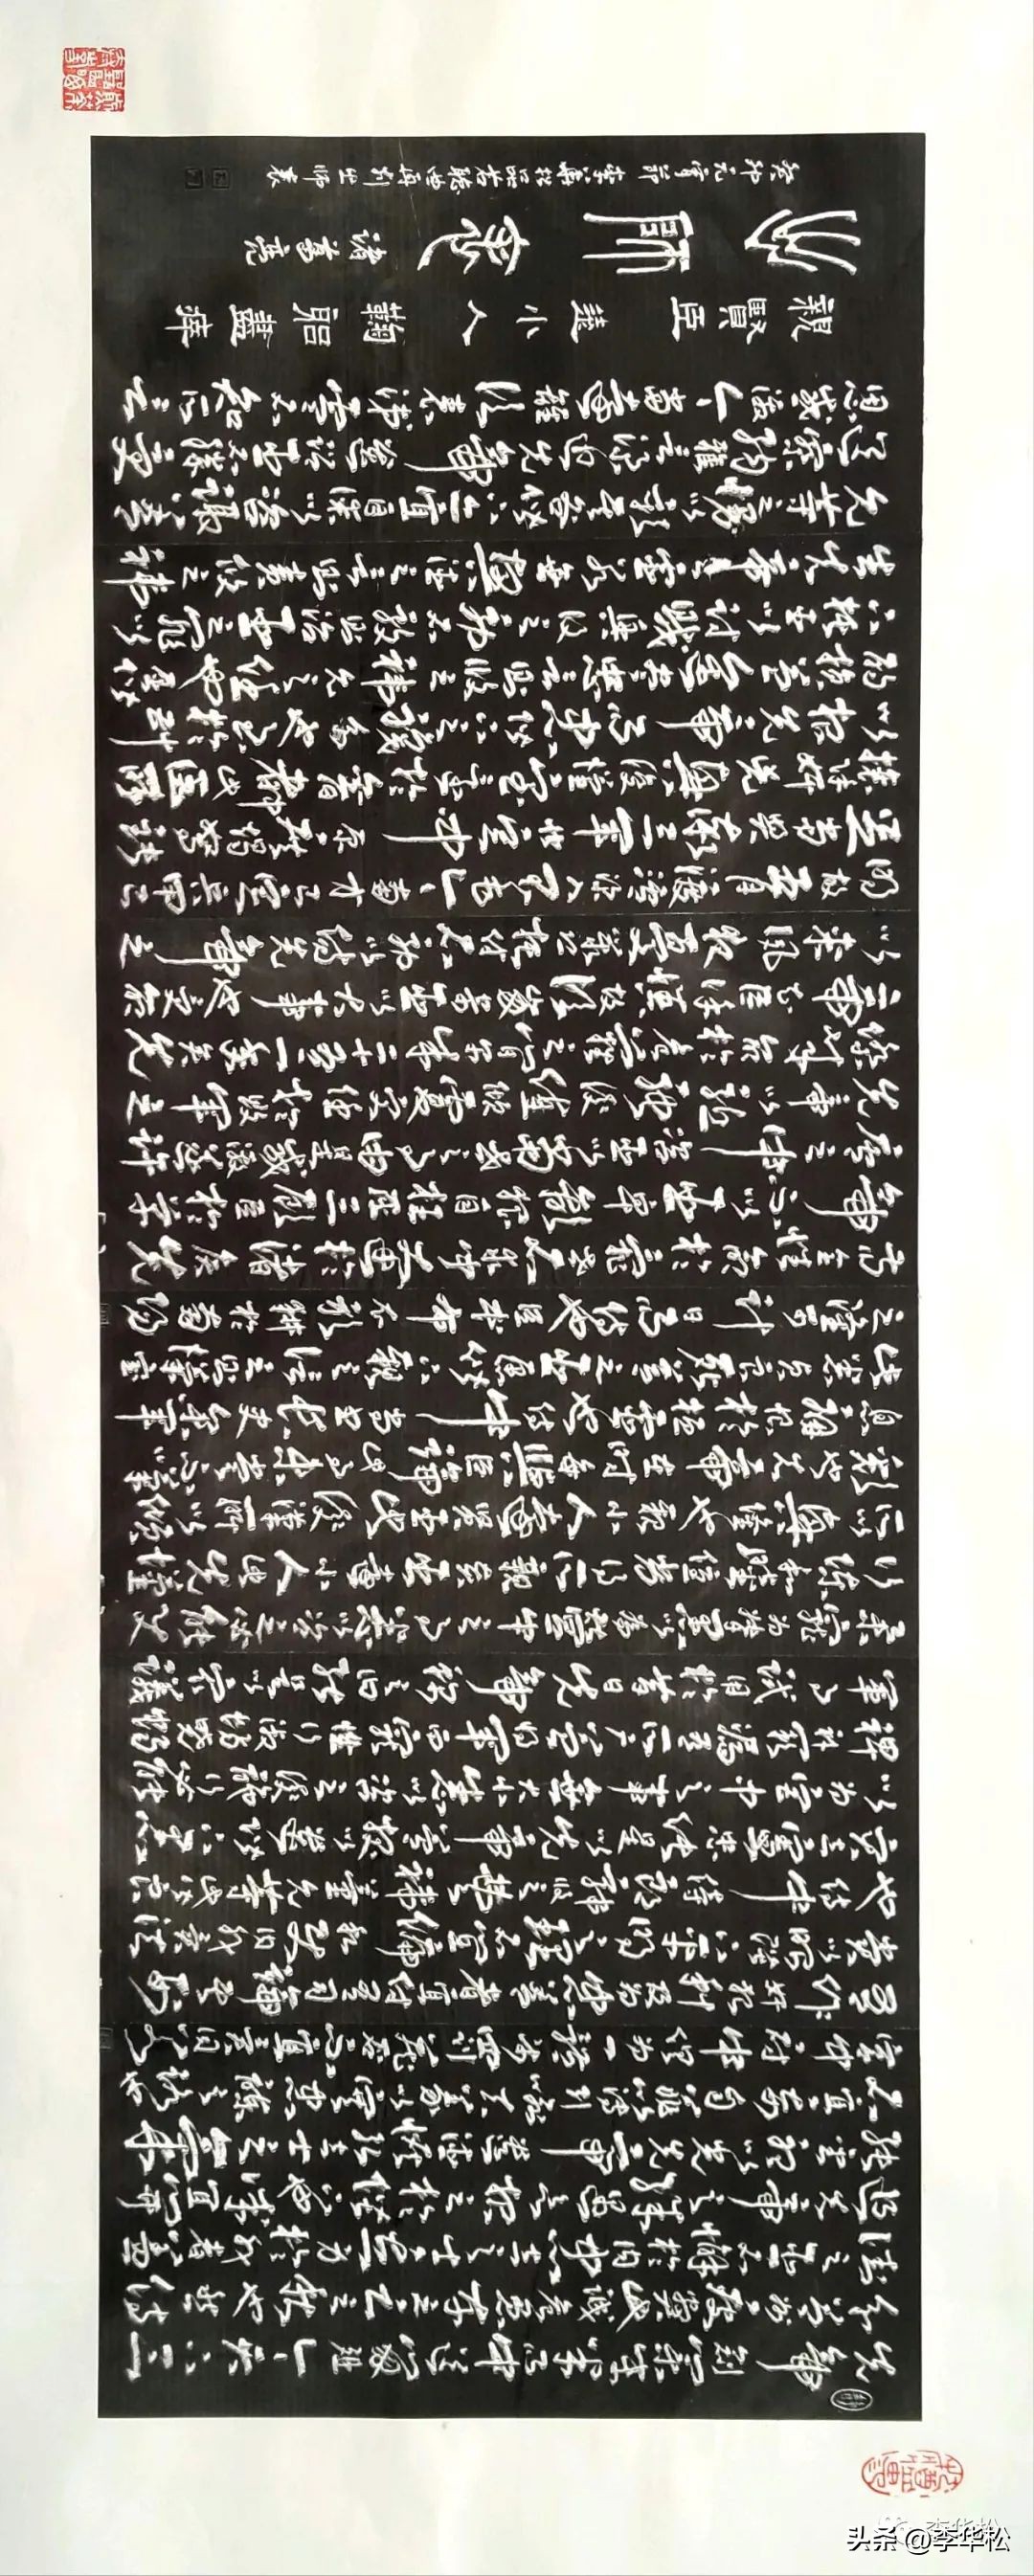 先帝創業未半而中道崩殂今天下三
分益州疲弊此誠危急存亡之秋也然侍
衛之臣不懈於內忠志之士忘身於外者蓋
追先帝之殊遇欲報之於陛下也誠宜開
張聖聽以光先帝遺德恢弘志士之氣
不宜妄自菲薄引喻失義以塞忠諫之路也
宮中府中俱為一體陟罰臧否不宜異同若
有作奸犯科及為忠善者宜付有司論其刑
賞以昭陛下平明之理不宜偏私使內外異法
也侍中侍郎郭攸之費禕董允等此皆良
實志慮忠純是以先帝簡拔以遺陛下愚
以為宮中之事事無大小悉以咨之然後施行必能
裨補闕漏有所廣益將軍向寵性行淑均曉暢
軍事試用於昔日先帝稱之曰能是以眾議
舉寵為督愚以為營中之事悉以咨之必能使
行陣和睦優劣得所親賢臣遠小人此先漢
所以興隆也親小人遠賢臣此後漢所以傾
頹也先帝在時每與臣論此事未嘗不歎
息痛恨於桓靈也侍中尚書長史參軍
此悉貞良死節之臣願陛下親之信之則漢室
之隆可計日而待也臣本布衣躬耕於南陽
苟全性命於亂世不求聞達於諸侯先
帝不以臣卑鄙猥自枉屈三顧臣於草
廬之中諮臣以當世之事由是感激遂許
先帝以驅馳後值傾覆受任於敗軍之
際奉命於危難之間爾來二十有一年矣先
帝知臣謹慎故臨崩寄臣以大事也受命
以來夙夜憂歎恐託付不效以傷先帝之
明故五月渡瀘深入不毛今南方已定兵甲已
足當獎率三軍北定中原庶竭駑鈍攘
除奸凶興復漢室還於舊都此臣所
以報先帝而忠陛下之職分也至於斟
酌損益進盡忠言則攸之禕允之任也願陛
下託臣以討賊興復之效不效則治臣之罪以
告先帝之靈若無興德之言則責攸之禕
允等之慢以彰其咎陛下亦宜自謀以諮諏善
道察納雅言深追先帝遺詔臣不勝受
恩感激今當遠離臨表涕零不知所云
親賢臣遠小人鞠躬盡瘁
出師表 諸葛亮
癸卯元宵節
頭条 @李华松